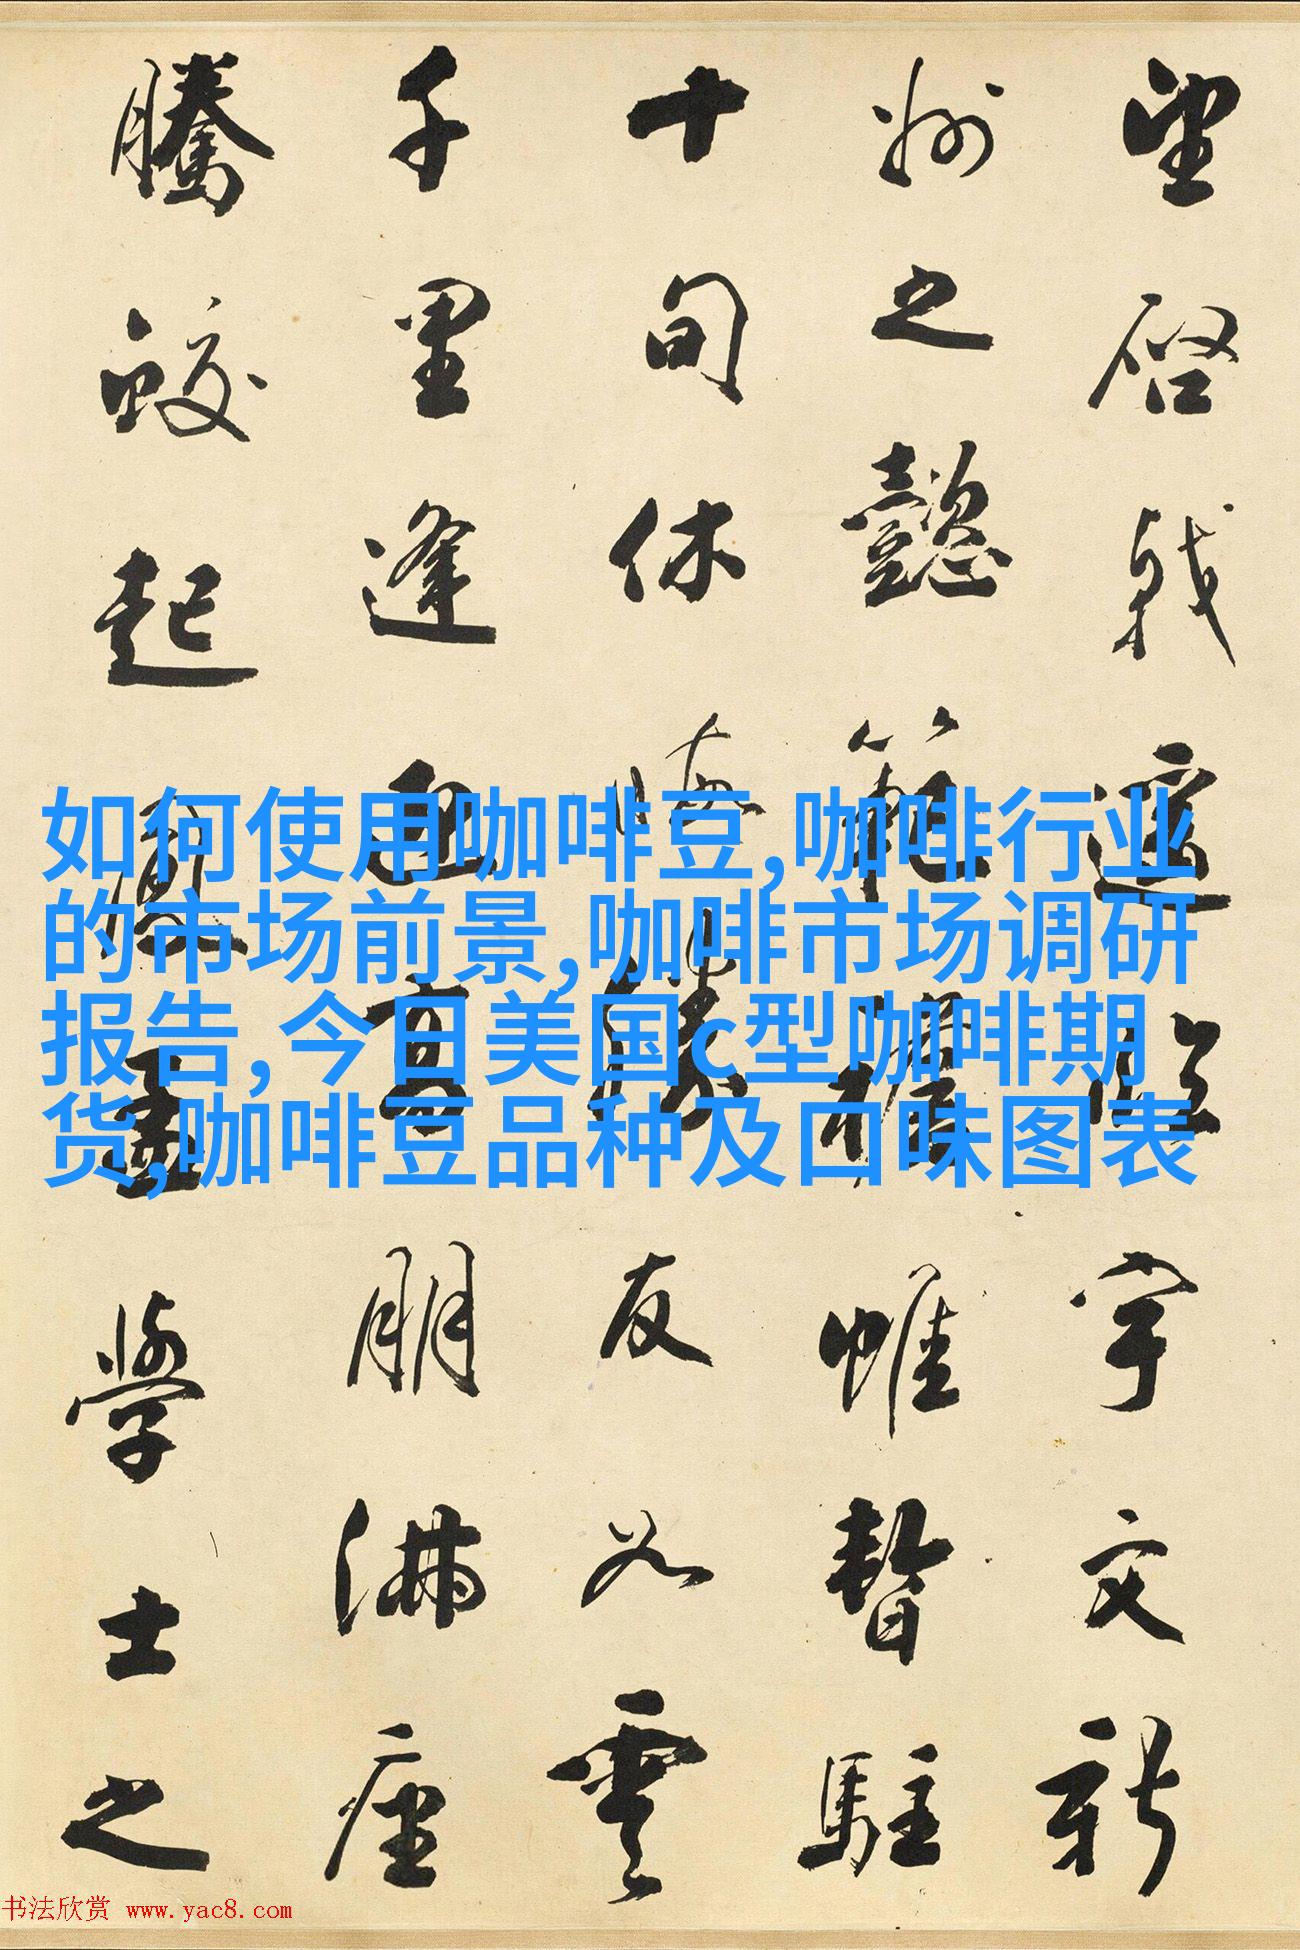 望啓戟遥臨宇文新
州之懿範帷暫駐
十旬休勝友如雲
千里逢迎高朋滿座
騰蛟起鳳孟學士之
如何使用咖啡豆,咖啡行业
的市场前景,咖啡市场调研
报告,今日美国c型咖啡期
货,咖啡豆品种及口味图表
书法欣赏 www.yac8.com